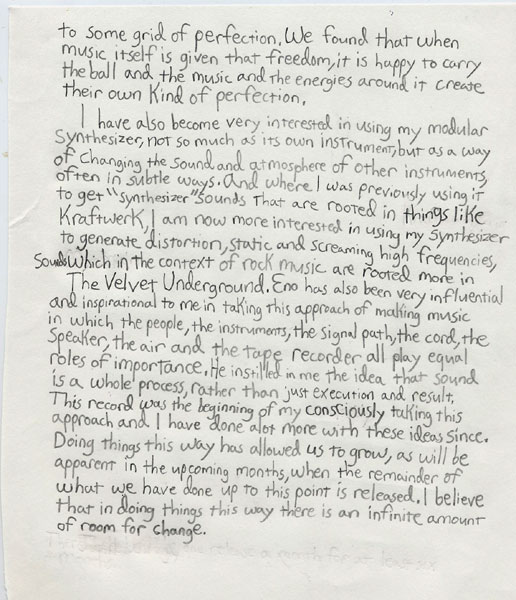 to some grid of perfection. We found that when
music itself is given that freedom, it is happy to carry
the ball and the music and the energies around it create
their own kind of perfection.
I have also become very interested in using my modular
Synthesizer, not so much as its own instrument, but as a way
of changing the sound and atmosphere of other instruments,
often in subtle ways. And where I was previously using it
to get "synthesizer" sounds that are rooted in things like
Kraftwerk, I am now more interested in using my synthesizer
to generate distortion, static and screaming high frequencies,
sounds which in the context of rock music are rooted more in
The Velvet Underground. Eno has also been very influential
and inspirational to me in taking this approach of making music
in which the people, the instruments, the signal path, the cord, the
speaker, the air and the tape recorder all play equal
roles of importance. He instilled in me the idea that sound
is a whole process, rather than just execution and result.
This record was the beginning of my consciously taking this
approach and I have done alot more with these ideas since.
Doing things this way has allowed us to grow, as will be
apparent in the upcoming months, when the remainder of
what we have done up to this point is released. I believe
that in doing things this way there is an infinite amount
of room for change.
release a month for at least six